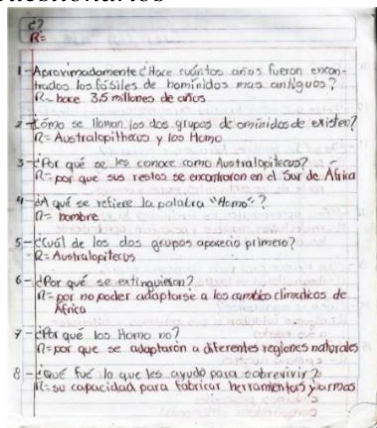 ¿?
R=
1- Aproximadamente ¿Hace cuántos años fueron encon-
trados los fósiles de hominidos mas antiguos?
R- hace 3.5 millones de años
2- ¿Cómo se llaman los dos grupos de ominidos de existen?
R= Australopithecus y los Homo
3- ¿Por qué se les conoce como Australopitecus?
R= por que sus restos se encontraron en el Sur de África
4- ¿A qué se refiere la palabra "Homo"?
R= hombre
5- ¿Cuál de los dos grupos aparecio primero?
R= Australopitecus
6- ¿Por qué se extinguieron?
R= por no poder adaptarse a los cambios climaticos de
África
7- ¿Por qué los Homo no?
R= por que se adaptarón a diferentes regiones naturales
8- ¿Qué fué lo que les ayudo para sobrevivir?
R= su capacidad para fabricar herramientas y armas